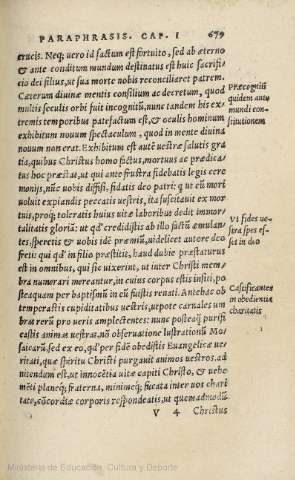 PARAPHRASIS. CAP. I 679
crucis. Neq; uero id factum est fortuito, sed ab æterno
& ante conditum mundum destinatus est huic sacrifi-
cio dei filius, ut sua morte nobis reconciliaret patrem.
Cæterum diuinæ mentis consilium ac decretum, quod
multis seculis orbi fuit incognitū, nunc tandem his ex-
tremis temporibus patefactum est, & oculis hominum
exhibitum nouum spectaculum, quod in mente diuina
nouum non erat. Exhibitum est aūt uestræ salutis gra-
tia, quibus Christus homo factus, mortuus ac prædica-
tus hoc præstat, ut qui ante frustra fidebatis legis cere
monijs, nūc uobis diffisi, fidatis deo patri: q ut eū mori
uoluit expiandis peccatis uestris, ita suscitauit ex mor
tuis, proq; toleratis huius uitæ laboribus dedit immor-
talitatis gloriā: ut qd' credidistis ab illo factū æmulan-
tes, speretis & uobis idē præmiū, uidelicet autore deo
freti: qui qd' in filio præstitit, haud dubie præstaturus
est in omnibus, qui sic uixerint, ut inter Christi mem-
bra numerari mereantur, in cuius corpus estis insiti, po
steaquam per baptismū in eū fuistis renati. Antehac ob
temperastis cupiditatibus uestris, utpote carnales um
bras rerū pro ueris amplectentes: nunc posteaq; purifi
castis animas uestras, nō obseruatione lustrationū Mo
saicarū, sed ex eo, qd' per fidē obedistis Euangelicæ ue-
ritati, quæ spiritu Christi purgauit animos uestros, ad
nitendum est, ut innocētia uitæ capiti Christo, & uehe
mēti planeq; fraterna, minimeq; fucata inter uos chari
tate, cōcordiæ corporis respondeatis, ut quemadmodū
V 4 Christus
Præcogniti
quidem ante
mundi con-
stitutionem
Vt fides ue-
stra spes es-
set in deo
Castificantes
in obedientia
charitatis
Ministerio de Educación, Cultura y Deporte